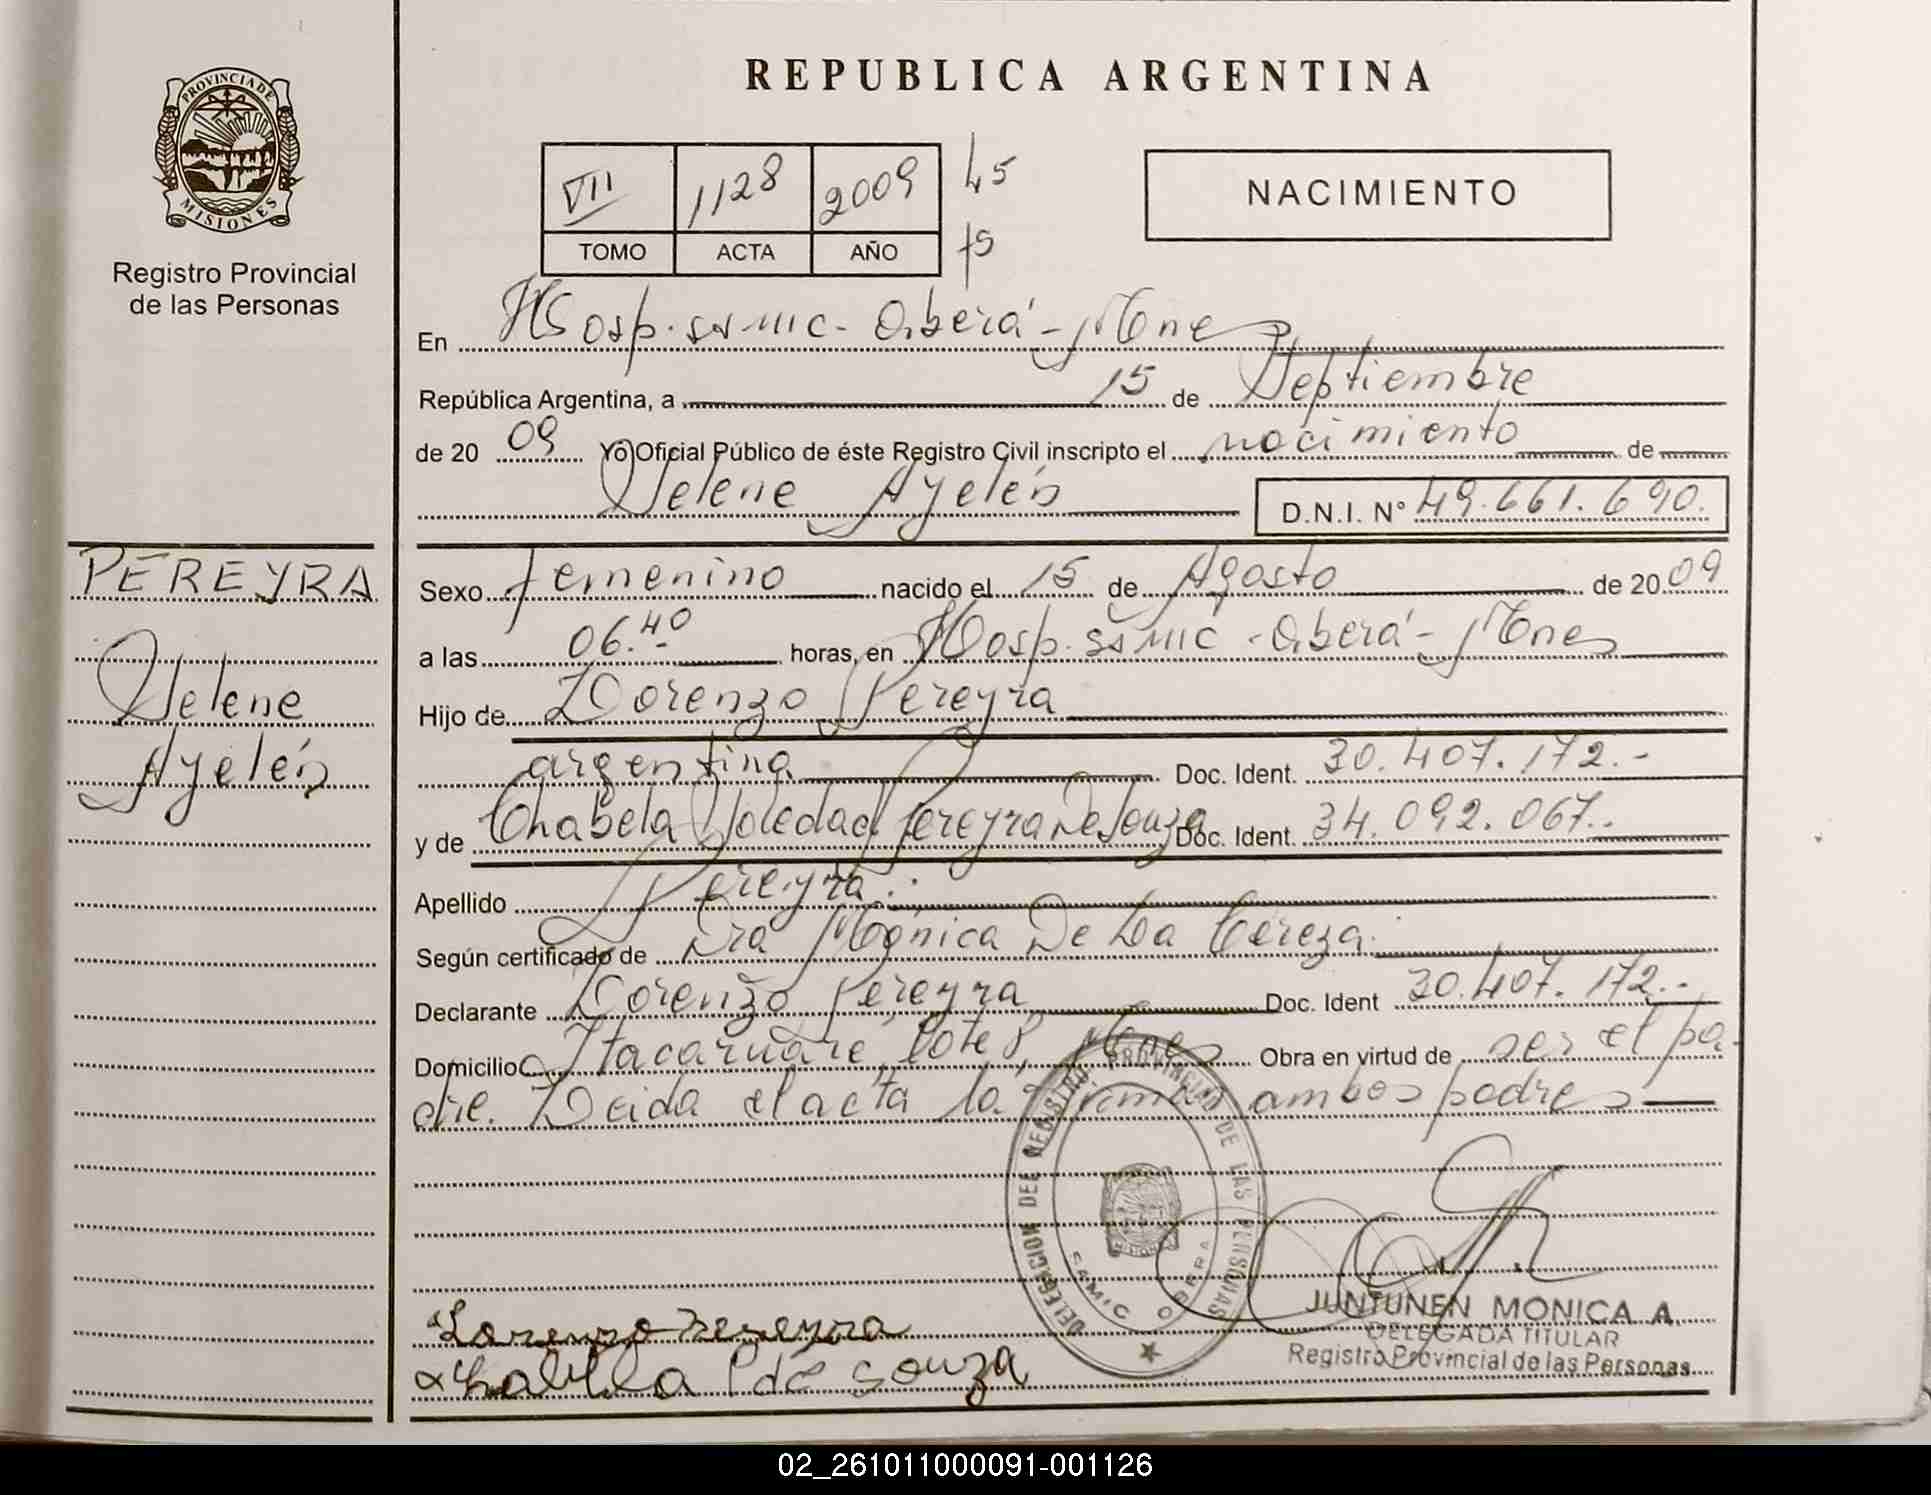 PROVINCIA DE
MISIONES
Registro Provincial
de las Personas
REPUBLICA ARGENTINA
VII 1128 2009 45
TOMO ACTA AÑO
NACIMIENTO
En Hosp. samic - Oberá - Mnes
República Argentina, a 15 de Septiembre
de 20 09 Yo Oficial Público de éste Registro Civil inscripto el nacimiento de
Selene Ayelén D.N.I. N° 49.661.690.
PEREYRA
Selene
Ayelén
Sexo femenino nacido el 15 de Agosto de 20 09
a las 06.40 horas, en Hosp. samic - Oberá - Mnes
Hijo de Lorenzo Pereyra
argentina Doc. Ident. 30.407.172.-
y de Chabela Soledad Pereyra De Souza Doc. Ident. 34.092.067.-
Apellido Pereyra.
Según certificado de Dra Mónica De La Cereza.
Declarante Lorenzo Pereyra Doc. Ident 30.407.172.-
Domicilio Itacaruaré, lote 8, Mnes Obra en virtud de ser el pa-
dre. Leida el acta la firman ambos padres
DELEGACION DEL REGISTRO PROVINCIAL DE LAS PERSONAS
SAMIC OBERA
MISIONES
JUNTUNEN MONICA A.
DELEGADA TITULAR
Registro Provincial de las Personas
Lorenzo Pereyra
Chabela P de Souza
02_261011000091-001126